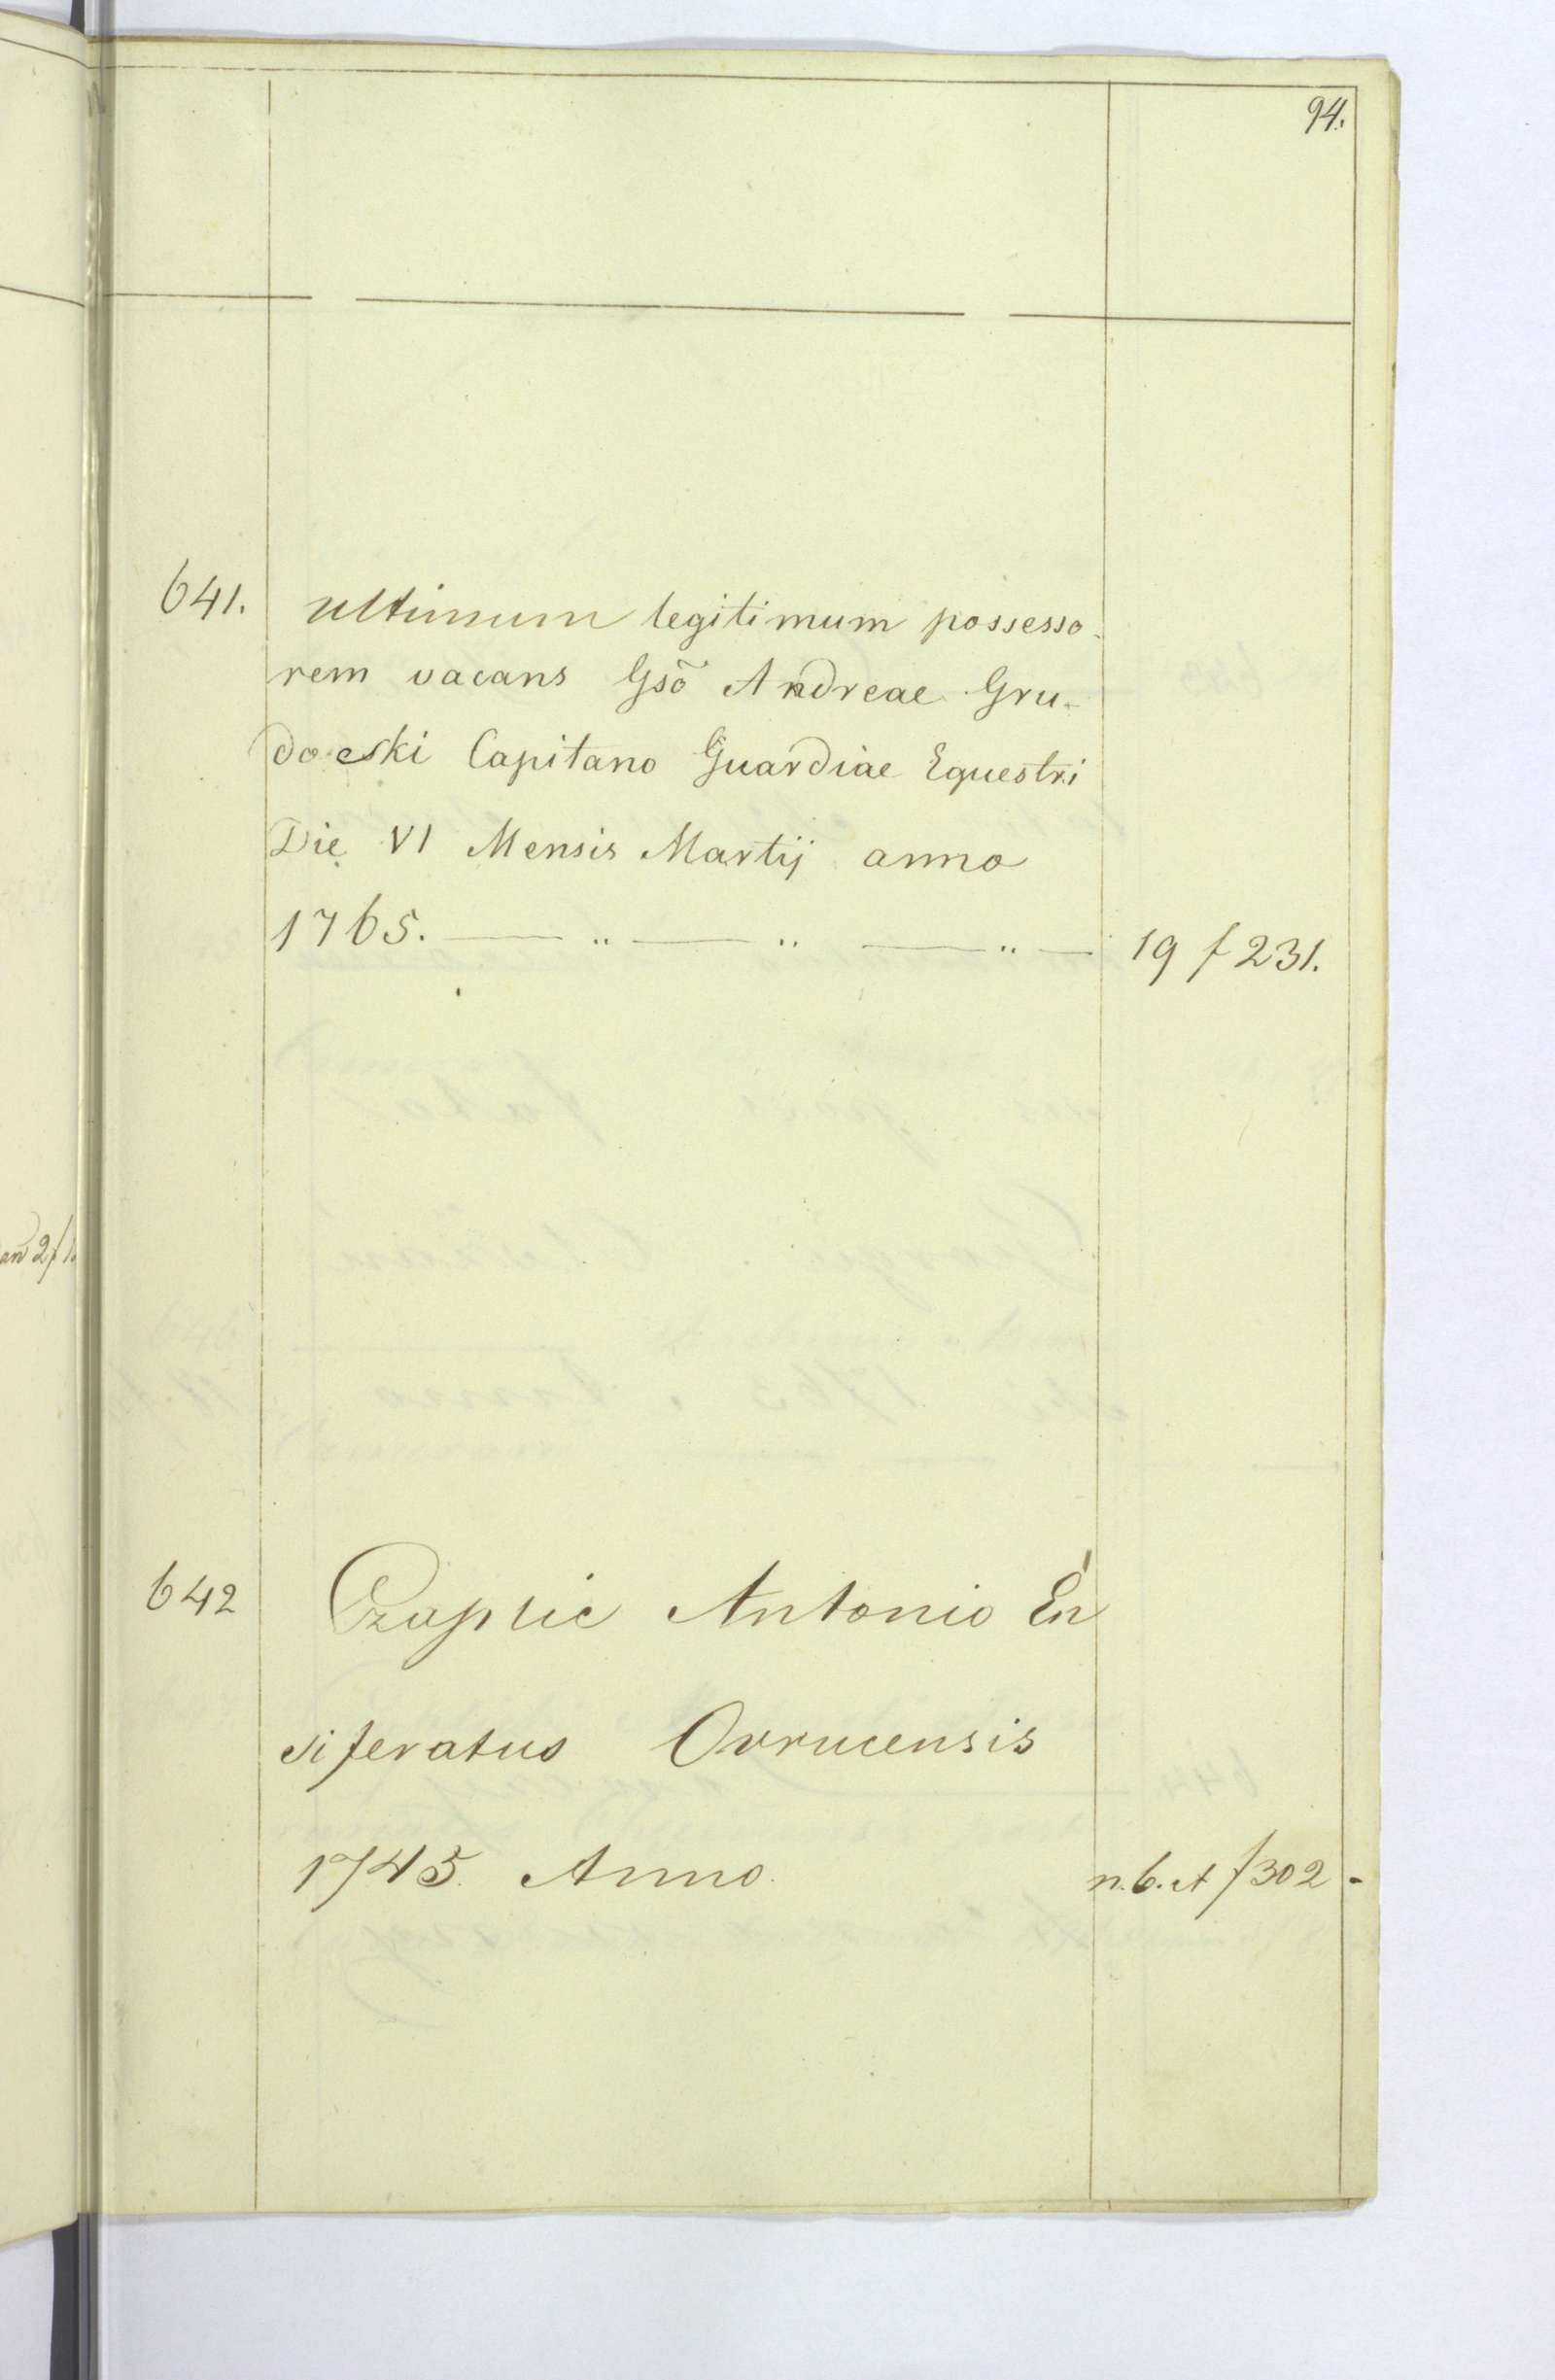 94.
641. ultimum legitimum possesso-
rem vacans Gsõ Andreae Gru-
do eski Capitano Guardiae Equestri
Die VI Mensis Martij anno
1765. — „ — „ — „ — 19 f 231.
642 Czaplic Antonio En
siferatus Ovrucensis
1745. Anno. n. 6. et f 302 -